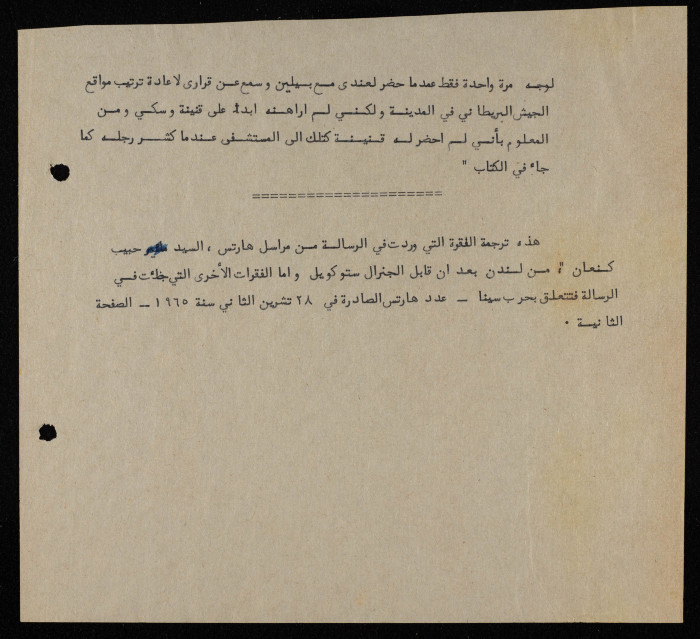 لوجه مرة واحدة فقط عندما حضر لعندى مع بيلين وسمع عن قرارى لاعادة ترتيب مواقع
الجيش البريطاني في المدينة ولكني لم اراهنه ابدا على قنينة وسكي ومن
المعلوم بأني لم احضر له قنينة كتلك الى المستشفى عندما كسر رجله كما
جاء في الكتاب "
=====================
هذه ترجمة الفقرة التي وردت في الرسالة من مراسل هارتس ، السيد حبيب
كنعان ، من لندن بعد ان قابل الجنرال ستوكويل واما الفقرات الأخرى التي جاءت في
الرسالة فتتعلق بحرب سينا – عدد هارتس الصادرة في ٢٨ تشرين الثاني سنة ١٩٦٥ – الصفحة
الثانية .